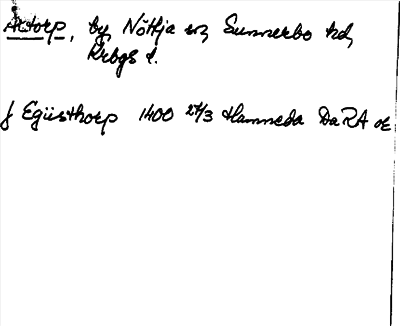 Aktorp, by, Nöttja sn, Sunnerbo hd,
Krbgs l.
J Egüsthorp 1400 24/3 Hamneda DaRA or